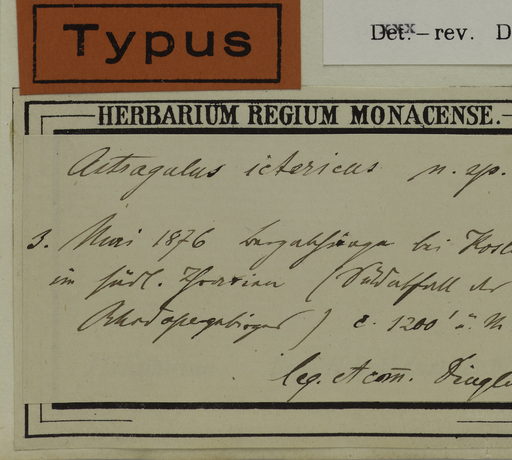 Typus
Det.- rev. D
HERBARIUM REGIUM MONACENSE.-
Astragalus ictericus n. sp.
3. Mai 1876 bergabhänge bei Kosl
im südl. Thracien (Südabfall der
Rhodopegebirges) c. 1200' ü. M
leg. et com. Dingle